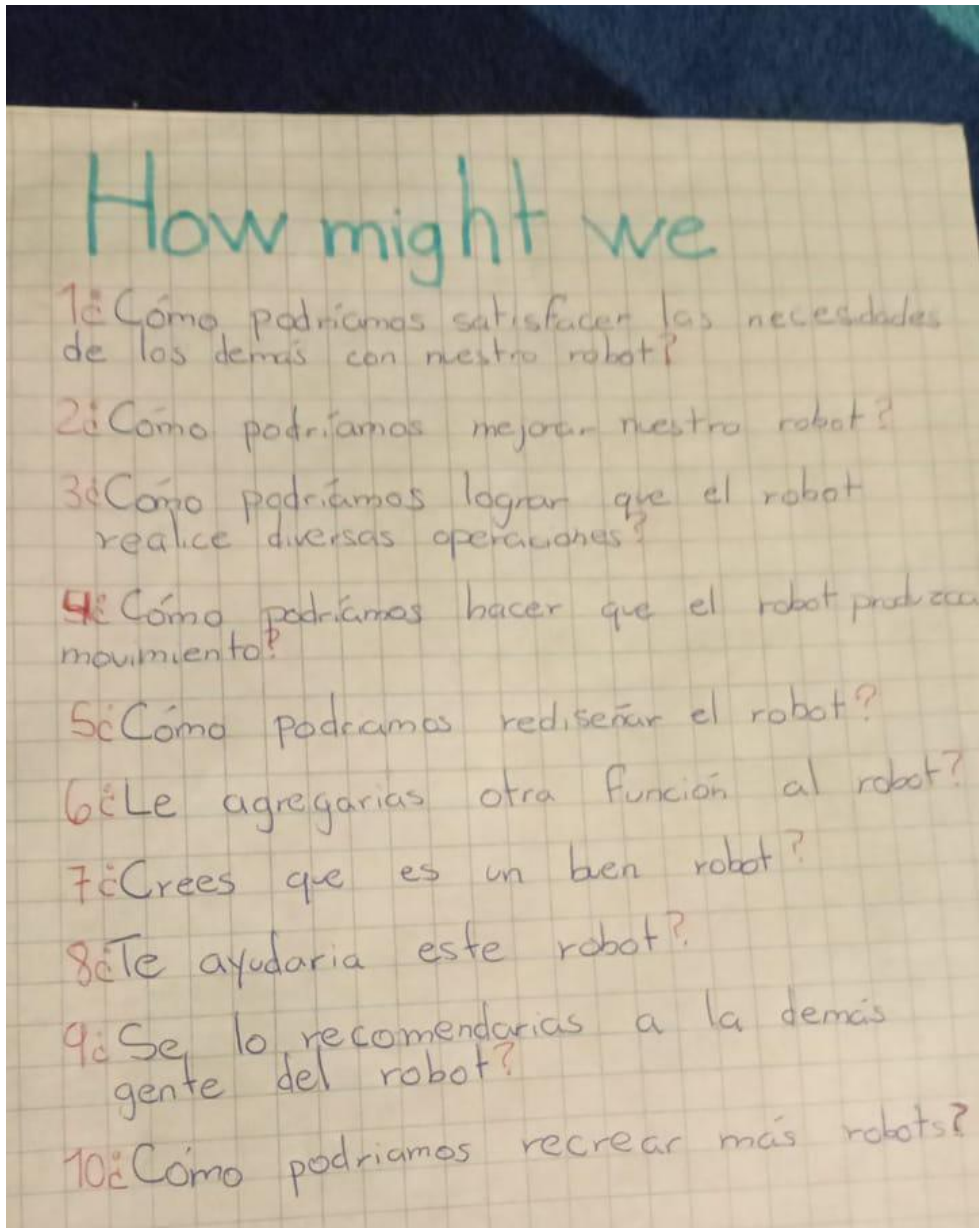 How might we
1¿Cómo podríamos satisfacer las necesidades
de los demás con nuestro robot?
2¿Cómo podríamos mejorar nuestro robot?
3¿Cómo podríamos lograr que el robot
realice diversas operaciones?
4¿Cómo podríamos hacer que el robot produzca
movimiento?
5¿Cómo podramos rediseñar el robot?
6¿Le agregarias otra función al robot?
7¿Crees que es un buen robot?
8¿Te ayudaria este robot?
9¿Se lo recomendarias a la demás
gente del robot?
10¿Cómo podriamos recrear más robots?